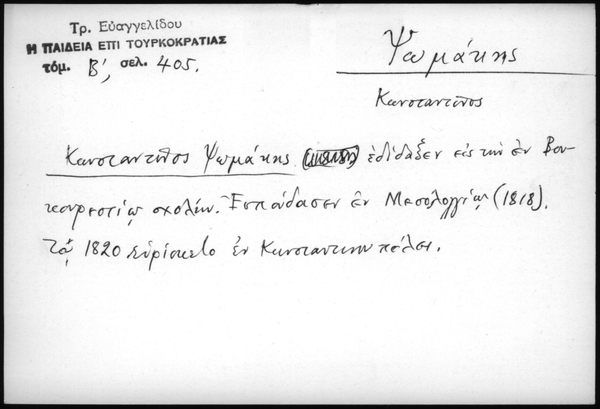 Τρ. Εὐαγγελίδου
Η ΠΑΙΔΕΙΑ ΕΠΙ ΤΟΥΡΚΟΚΡΑΤΙΑΣ
τόμ. Β', σελ. 405.
Ψωμάκης
Κωνσταντῖνος
Κωνσταντῖνος Ψωμάκης ἐδίδαξεν εἰς τὴν ἐν Βου-
κουρεστίῳ σχολήν. Ἐσπούδασεν ἐν Μεσολογγίῳ (1818).
Τῷ 1820 εὑρίσκετο ἐν Κωνσταντινουπόλει.